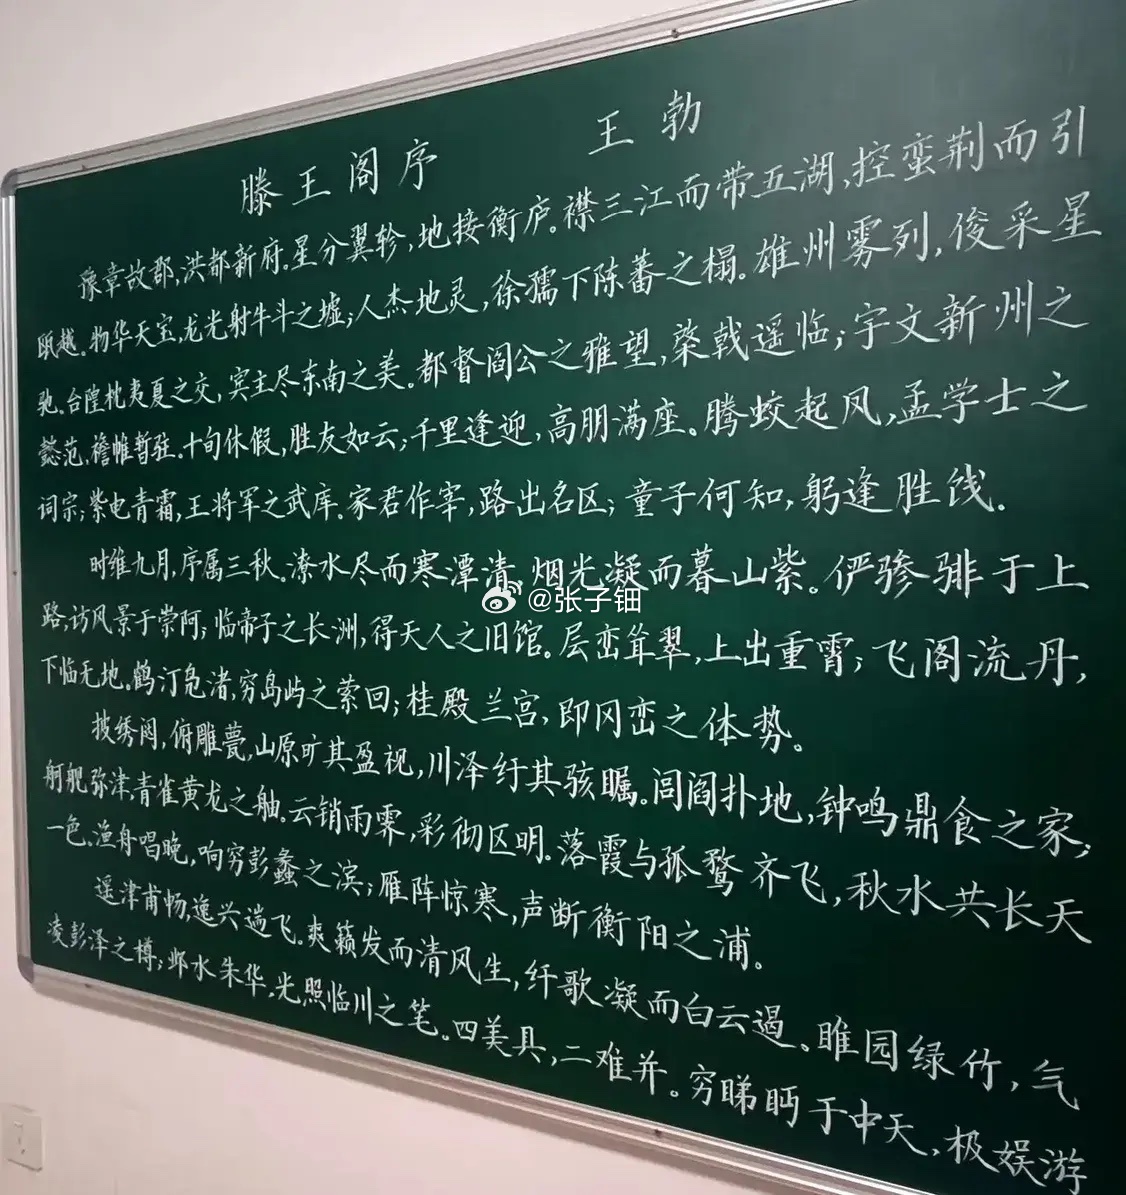 滕王阁序 王勃
豫章故郡,洪都新府。星分翼轸,地接衡庐。襟三江而带五湖,控蛮荆而引
瓯越。物华天宝,龙光射牛斗之墟;人杰地灵,徐孺下陈蕃之榻。雄州雾列,俊采星
驰。台隍枕夷夏之交,宾主尽东南之美。都督阎公之雅望,棨戟遥临;宇文新州之
懿范,襜帷暂驻。十旬休假,胜友如云;千里逢迎,高朋满座。腾蛟起凤,孟学士之
词宗;紫电青霜,王将军之武库。家君作宰,路出名区;童子何知,躬逢胜饯。
时维九月,序属三秋。潦水尽而寒潭清,烟光凝而暮山紫。俨骖騑于上
路,访风景于崇阿;临帝子之长洲,得天人之旧馆。层峦耸翠,上出重霄;飞阁流丹,
下临无地。鹤汀凫渚,穷岛屿之萦回;桂殿兰宫,即冈峦之体势。
披绣闼,俯雕甍,山原旷其盈视,川泽纡其骇瞩。闾阎扑地,钟鸣鼎食之家;
舸舰弥津,青雀黄龙之舳。云销雨霁,彩彻区明。落霞与孤鹜齐飞,秋水共长天
一色。渔舟唱晚,响穷彭蠡之滨;雁阵惊寒,声断衡阳之浦。
遥津甫畅,逸兴遄飞。爽籁发而清风生,纤歌凝而白云遏。睢园绿竹,气
凌彭泽之樽;邺水朱华,光照临川之笔。四美具,二难并。穷睇眄于中天,极娱游
@张子铀